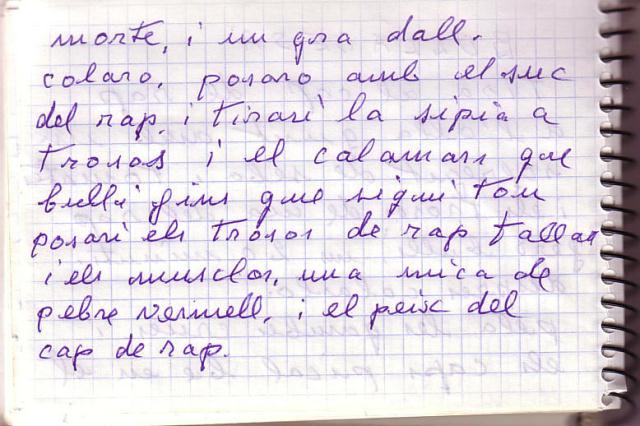 morte, i un gra d'all.
colaro, posaro amb el suc
del rap, i tirari la sipia a
trosos i el calamars que
bulli fins que sigui tou
posari els trosos de rap tallat
i els musclos, una mica de
pebre vermell, i el peix del
cap de rap.